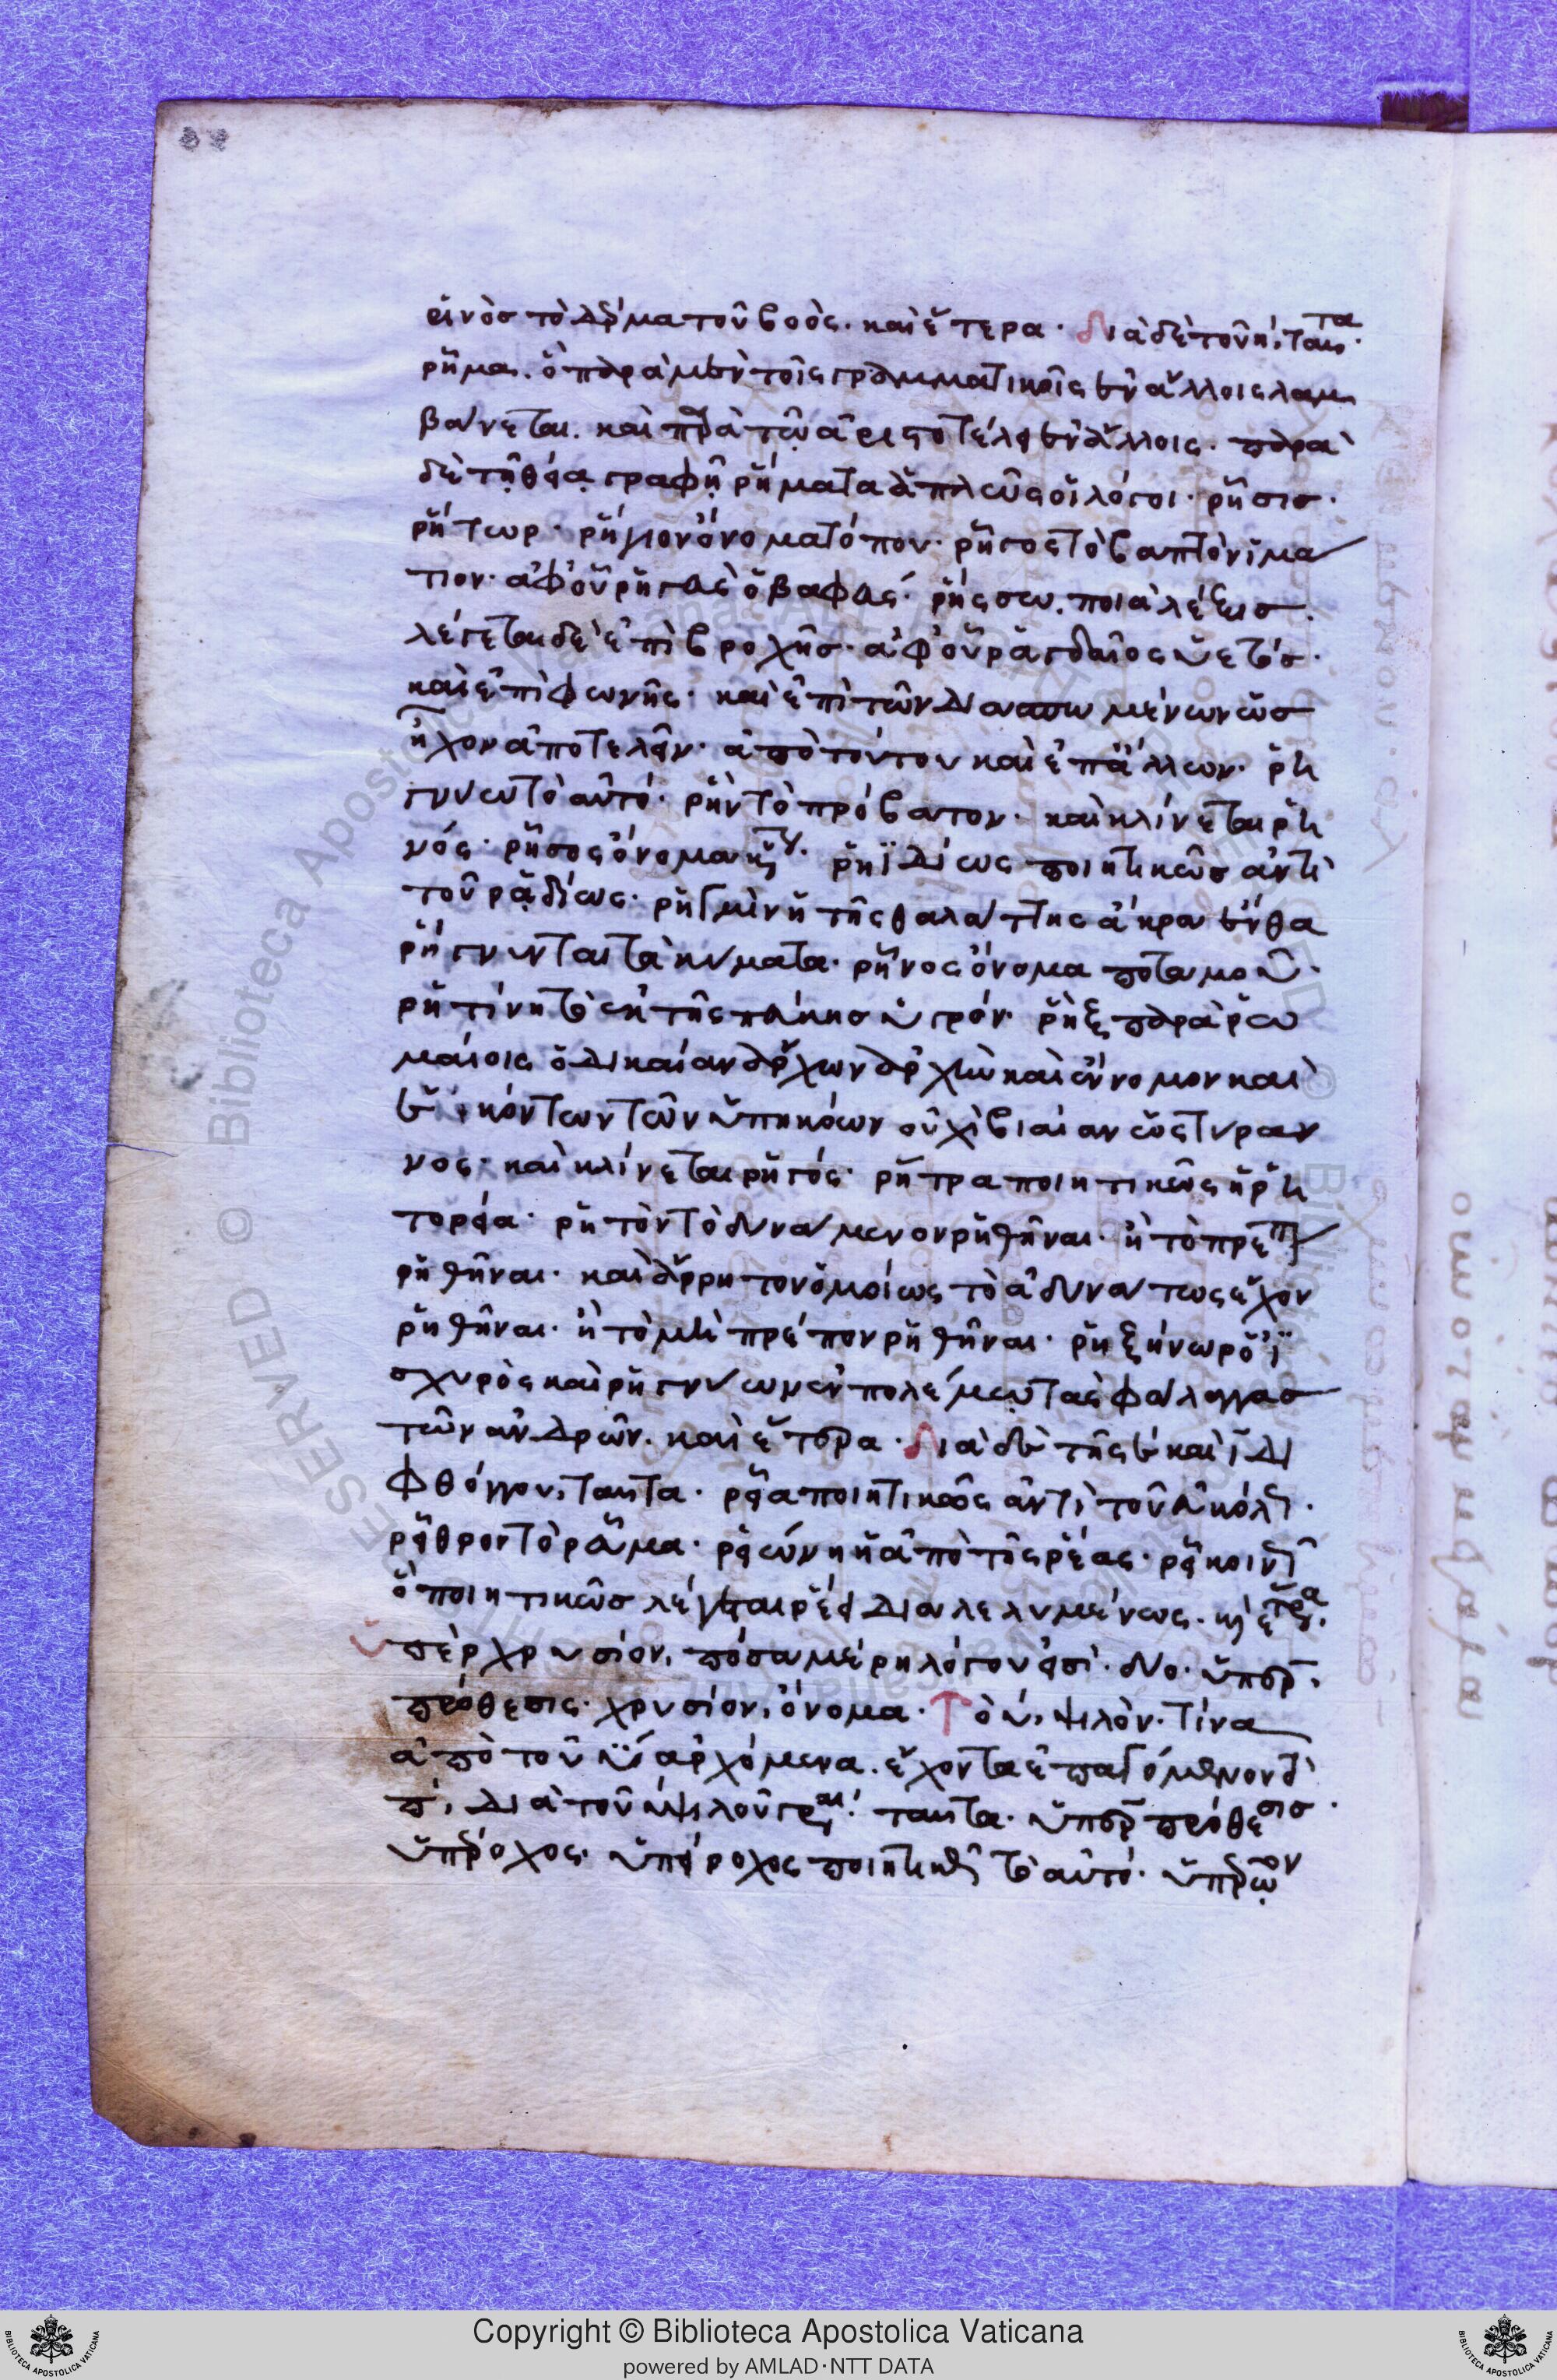 ρινὸς τὸ δέρμα τοῦ βοός· καὶ ἕτερα· διὰ δὲ τοῦ η, ταῦτα·
ῥῆμα. ὃ παρὰ μὲν τοῖς γραμματικοῖς ἐν ἄλλοις λαμ
βάνεται. καὶ παρὰ τῷ ἀριστοτέλει ἐν ἄλλοις· παρὰ
δὲ τῇ θείᾳ γραφῇ ῥήματα ἁπλῶς οἱ λόγοι· ῥῆσις·
ῥήτωρ· ῥήγιον ὄνομα τόπου· ῥῆγος τὸ βαπτὸν ἱμά
τιον· ἀφ' οὗ ῥηγεὺς ὁ βαφεύς· ῥήσσω. ποιὰ λέξις·
λέγεται δὲ ἐπὶ βροχῆς· ἀφ' οὗ ῥαγδαῖος ὑετός·
καὶ ἐπὶ φωνῆς· καὶ ἐπὶ τῶν
ἦχον ἀποτελεῖν· ἀπὸ τούτου καὶ ἐπ' ἄλλων· ῥη
γνύω τὸ αὐτό· ῥὴν τὸ πρόβατον· καὶ κλίνεται ῥη
νός· ῥῆσος ὄνομα κύριον· ῥηϊδίως ποιητικῶς ἀντὶ
τοῦ ῥᾳδίως· ῥηγμὶν ἡ τῆς θαλάττης ἄκρα ἔνθα
ῥήγνυνται τὰ κύματα· ῥῆνος ὄνομα ποταμοῦ·
ῥητίνη τὸ ἐκ τῆς πεύκης ὑγρόν· ῥὴξ παρὰ ῥω
μαίοις ὁ δικαίαν ἄρχων ἀρχὴν καὶ ἔννομον καὶ
ἐξ ἑκόντων τῶν ὑπηκόων οὐχὶ βιαίαν ὡς τύραν
νος· καὶ κλίνεται ῥηγός· ῥήτρα ποιητικῶς ἡ ῥη
τορεία· ῥητὸν τὸ δυνάμενον ῥηθῆναι· ἢ τὸ πρέπον
ῥηθῆναι· καὶ ἄρρητον ὁμοίως τὸ ἀδυνάτως ἔχον
ῥηθῆναι· ἢ τὸ μὴ πρέπον ῥηθῆναι· ῥηξήνωρ ὁ ἰ
σχυρὸς καὶ ῥηγνύων ἐν πολέμῳ τὰς φάλαγγας
τῶν ἀνδρῶν· καὶ ἕτερα· διὰ δὲ τῆς ε καὶ ι δι
φθόγγου, ταῦτα· ῥεῖα ποιητικῶς ἀντὶ τοῦ εὐκόλως·
ῥεῖθρον τὸ ῥεῦμα· ῥειώνη ἡ ἀπὸ τῆς ῥέας· ῥεῖ κοινῶς
ὃ ποιητικῶς λέγεται ῥέει διαλελυμένως· καὶ ἕτερα·
ὑπὲρ χρυσίον, πόσα μέρη λόγου εἰσί· δύο· ὑπὲρ,
πρόθεσις· χρυσίον, ὄνομα· Τὸ υ, ψιλόν· τίνα
ἀπὸ τοῦ υ ἀρχόμενα. ἔχοντα ἐπαγόμενον τὸ
π, διὰ τοῦ υ ψιλοῦ γράφεται· ταῦτα· ὑπὲρ πρόθεσις·
ὑπέροχος· ὑπείροχος ποιητικῶς τὸ αὐτό· ὑπερῷον